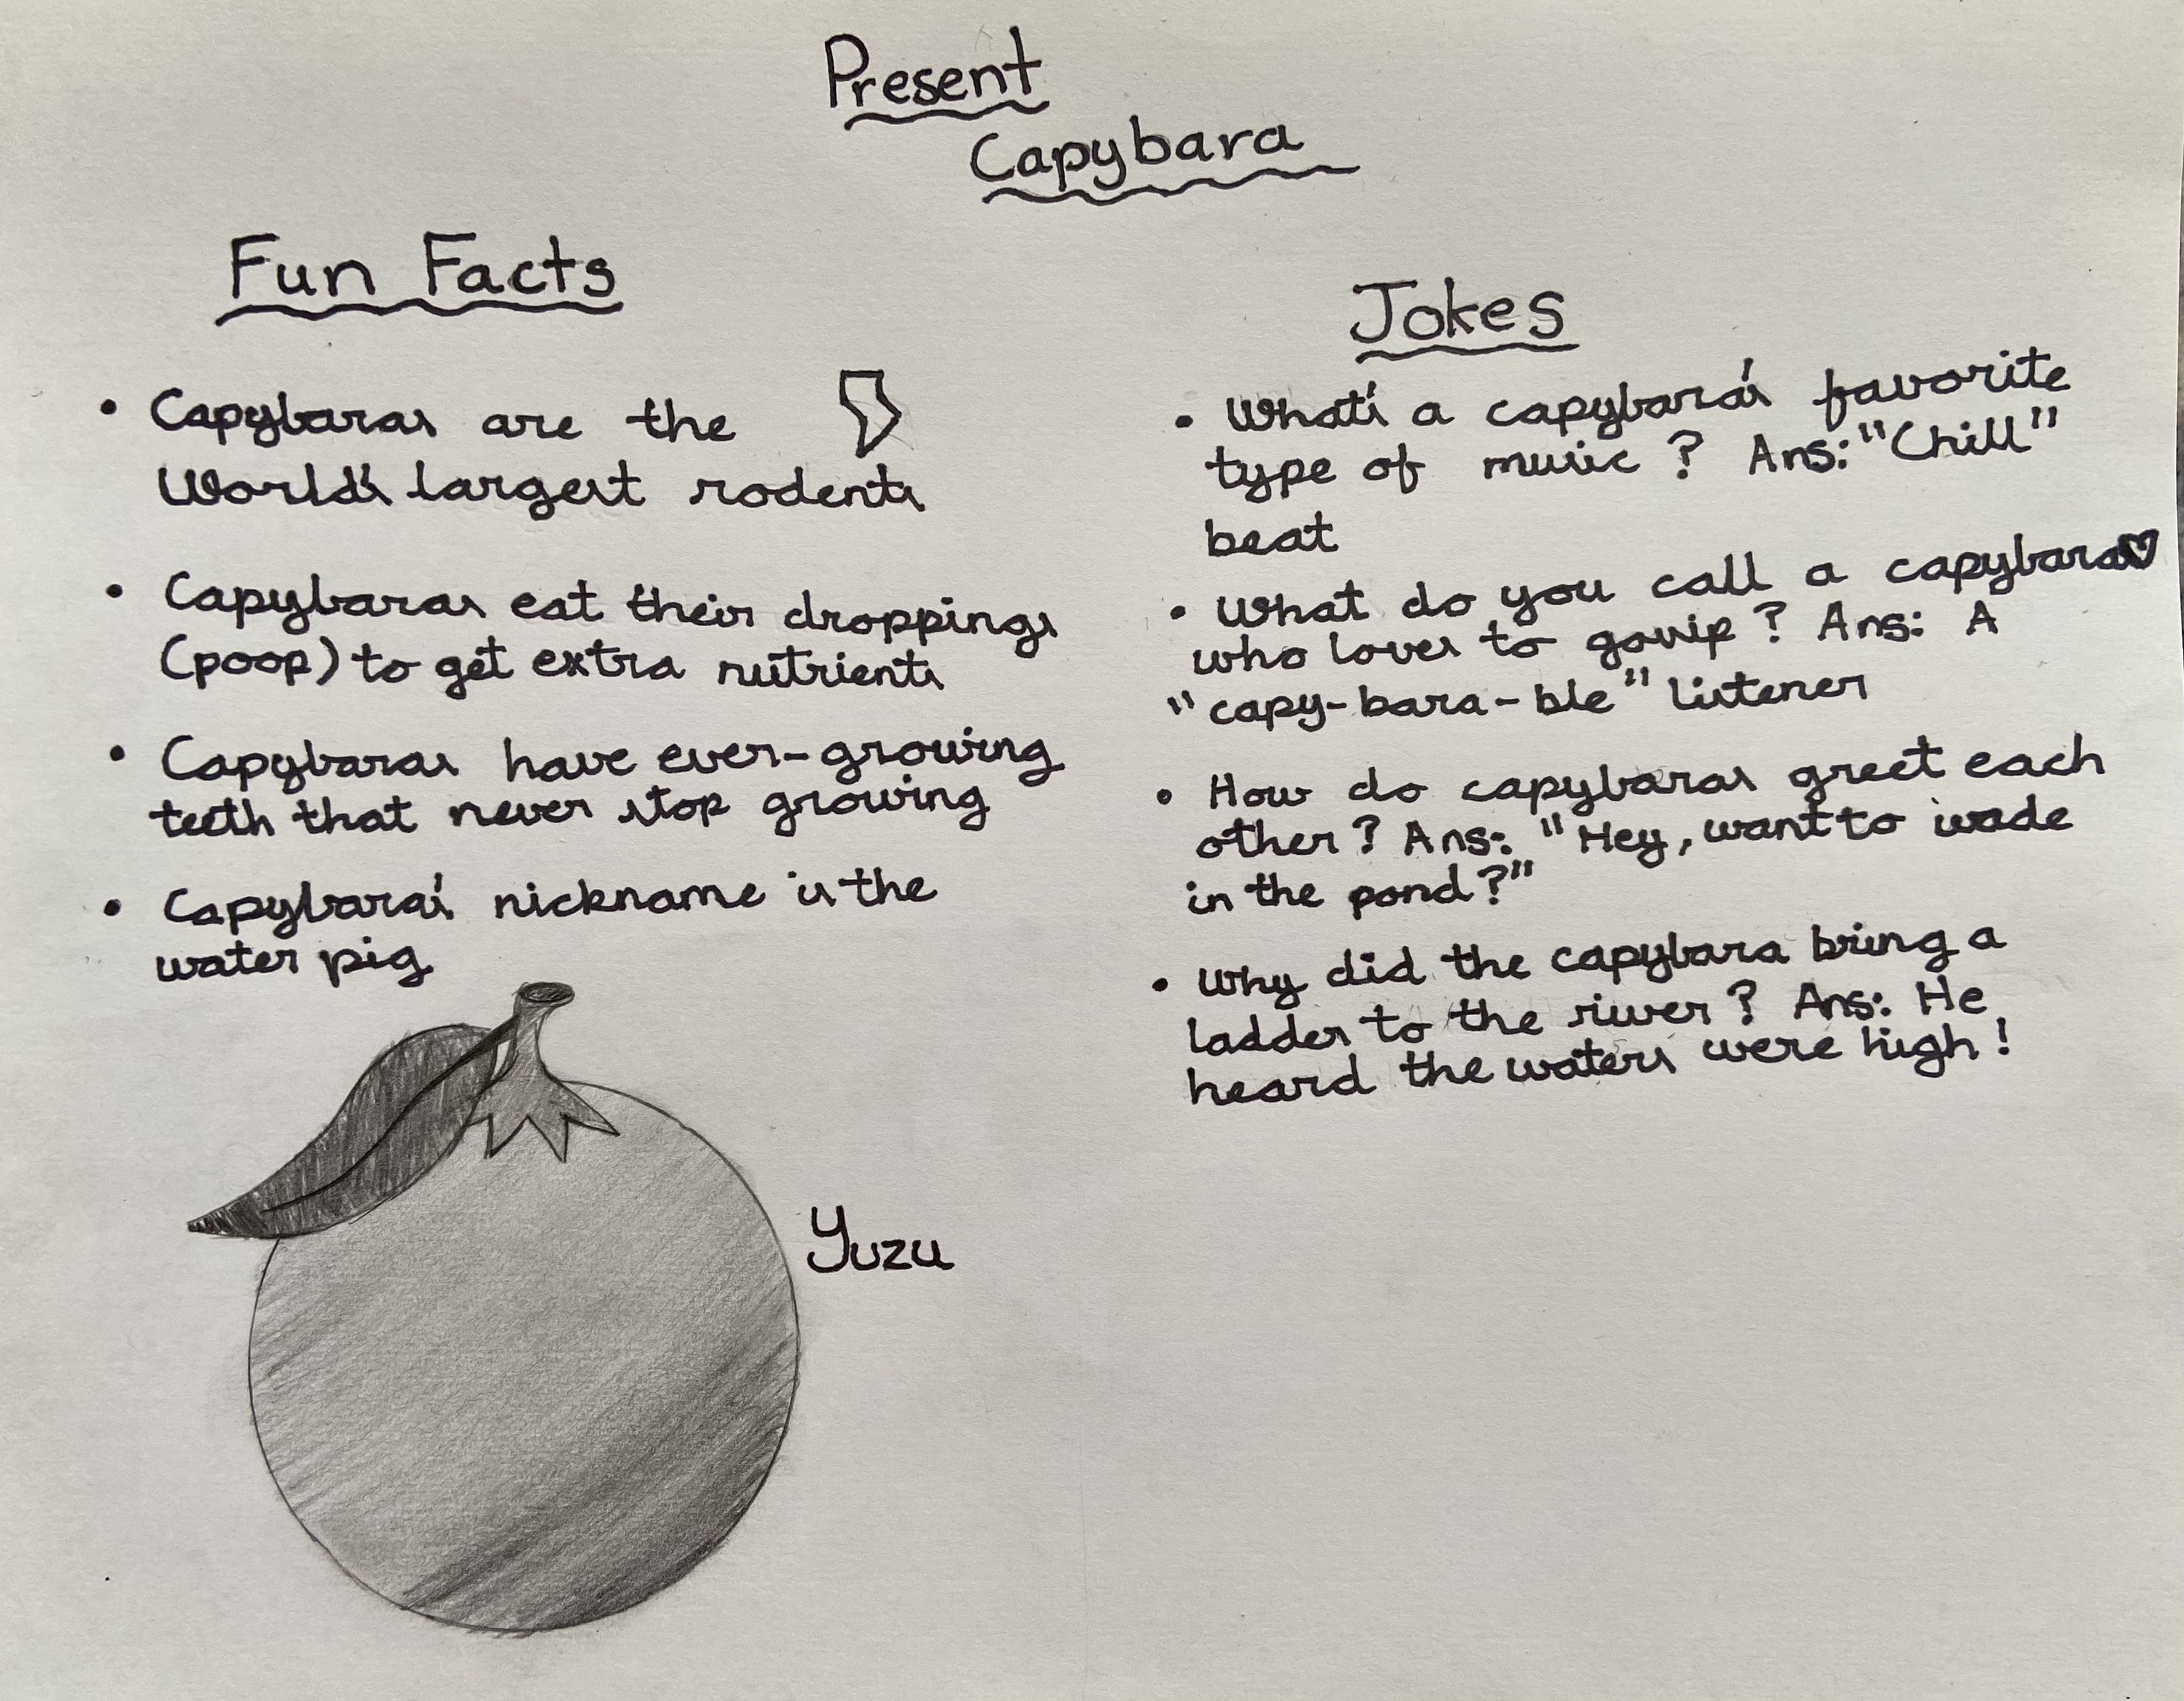 Present
Capybara
Fun Facts
• Capybaras are the
World's largest rodents
• Capybaras eat their droppings
(poop) to get extra nutrients
• Capybaras have ever-growing
teeth that never stop growing
• Capybara's nickname is the
water pig
Yuzu
Jokes
• What's a capybara's favorite
type of music? Ans: "Chill"
beat
• What do you call a capybara
who loves to gossip? Ans: A
"capy-bara-ble" listener
• How do capybaras greet each
other? Ans: "Hey, want to wade
in the pond?"
• Why did the capybara bring a
ladder to the river? Ans: He
heard the waters were high!